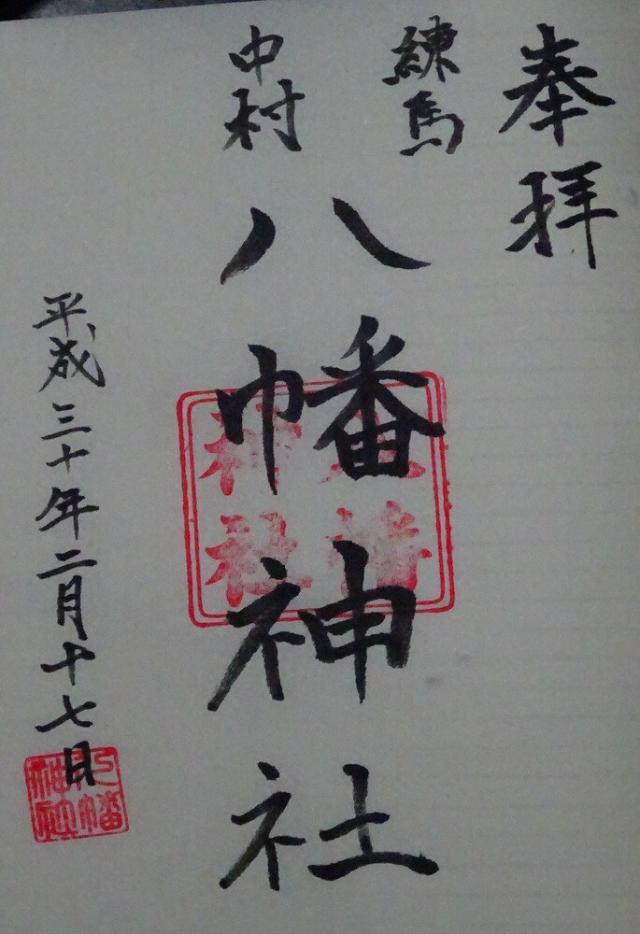 奉拝
練馬
中村
八幡神社
平成三十年二月十七日
八幡
神社
八幡
神社